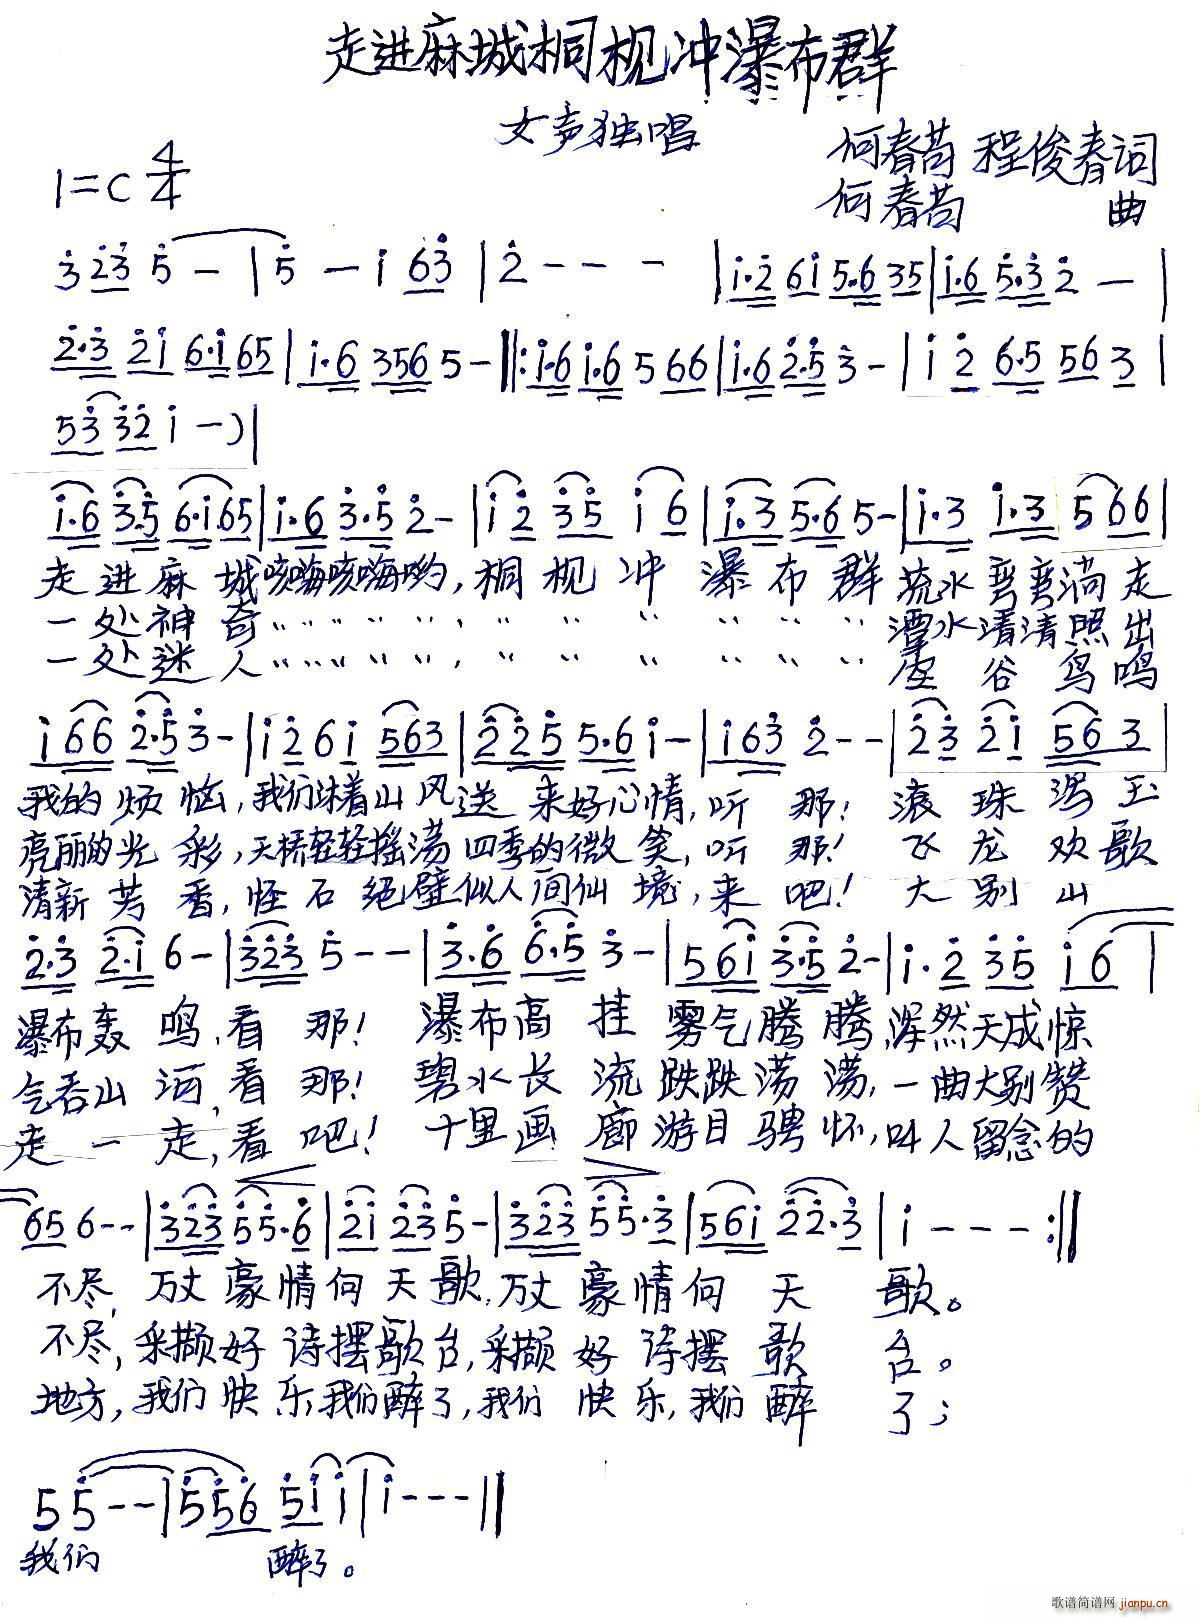 走进麻城桐枧冲瀑布群
女声独唱
1=C 4/4
何春苟 程俊春词
何春苟 曲
3 23 5 - | 5 - 1 63 | 2 - - - | 1·2 61 5·6 35 | 1·6 5·3 2 - |
2·3 21 6·1 65 | 1·6 356 5 - ‖: 1·6 1·6 5 66 | 1·6 2·5 3 - | 1 2 6·5 56 3 |
53 32 1 - ) |
1·6 3·5 6·1 65 | 1·6 3·5 2 - | 1 2 35 1 6 | 1·3 5·6 5 - | 1·3 1·3 5 66 |
走进麻城咳嗨咳嗨哟,桐枧冲瀑布群流水弯弯淌走
一处神奇〃〃〃〃〃,〃〃〃〃〃〃潭水清清照出
一处迷人〃〃〃〃〃,〃〃〃〃〃〃空谷鸟鸣
1 66 2·5 3 - | 1 2 6 1 563 | 2 2 5 5·6 1 - | 1 63 2 - - | 2 3 2 1 56 3 |
我的烦恼,我们沐着山风送来好心情,听那!滚珠泻玉
亮丽的光彩,天桥轻轻摇荡四季的微笑,听那!飞龙欢歌
清新芳香,怪石绝壁似人间仙境,来吧!大别山
2·3 2·1 6 - | 323 5 - - | 3·6 6·5 3 - | 561 3·5 2 - | 1·2 35 1 6 |
瀑布轰鸣,看那!瀑布高挂雾气腾腾,浑然天成惊
气吞山河,看那!碧水长流跌跌荡荡,一曲大别赞
走一走,看吧!十里画廊游目骋怀,叫人留念的
65 6 - - | 323 55·6 | 21 23 5 - | 323 55·3 | 561 22·3 | 1 - - - :‖
不尽,万丈豪情向天歌,万丈豪情向天歌。
不尽,采撷好诗摆歌台,采撷好诗摆歌台。
地方,我们快乐,我们醉了,我们快乐,我们醉了;
5 5 - - | 5 56 51 1 | 1 - - - ‖
我们醉了。
歌谱简谱网 jianpu.cn